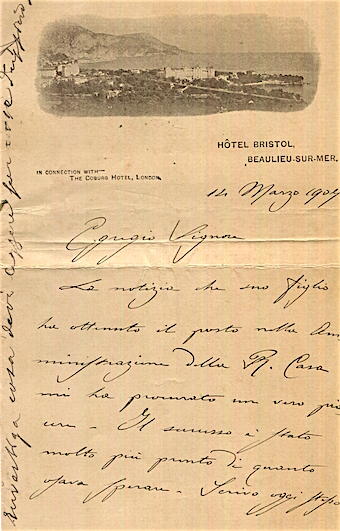 HÔTEL BRISTOL,
BEAULIEU-SUR-MER.
IN CONNECTION WITH
THE COBURG HOTEL, LONDON.
14 Marzo 1904
Egregio Signore
La notizia che suo figlio
ha ottenuto il posto nella Am
ministrazione della R. Casa
mi ha procurato un vero pia
cere - Il successo è stato
molto più pronto di quanto
osava sperare - Scrivo oggi stesso
cosa deve per